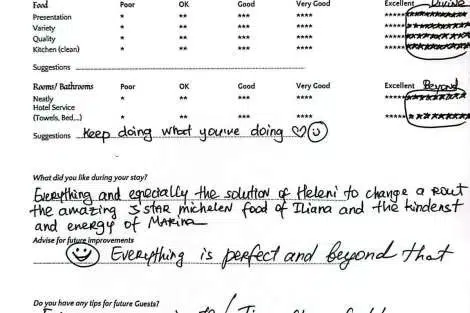 Food Poor OK Good Very Good Excellent Divine
Presentation * ** *** ****
Variety * ** *** ****
Quality * ** *** ****
Kitchen (clean) * ** *** ****
Suggestions
Rooms/ Bathrooms Poor OK Good Very Good Excellent Beyond
Neatly * ** *** ****
Hotel Service
(Towels, Bed,...) * ** *** ****
Suggestions Keep doing what you've doing ♡☺
What did you like during your stay?
Everything and especially the solution of Heleni to change a rout
the amazing 5 STAR michelen food of Iliana and the kindenst
and energy of Marina
Advise for future improvements
☺ Everything is perfect and beyond that
Do you have any tips for future Guests?